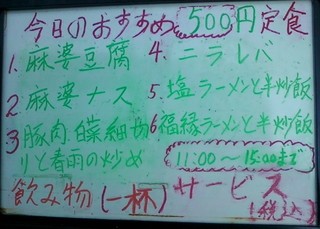 今日のおすすめ 500円定食
1. 麻婆豆腐 4. ニラレバ
2 麻婆ナス 5. 塩ラーメンと半炒飯
3 豚肉、白菜細切 6 福縁ラーメンと半炒飯
りと春雨の炒め 11:00〜15:00まで
飲み物(一杯)サービス
(税込)